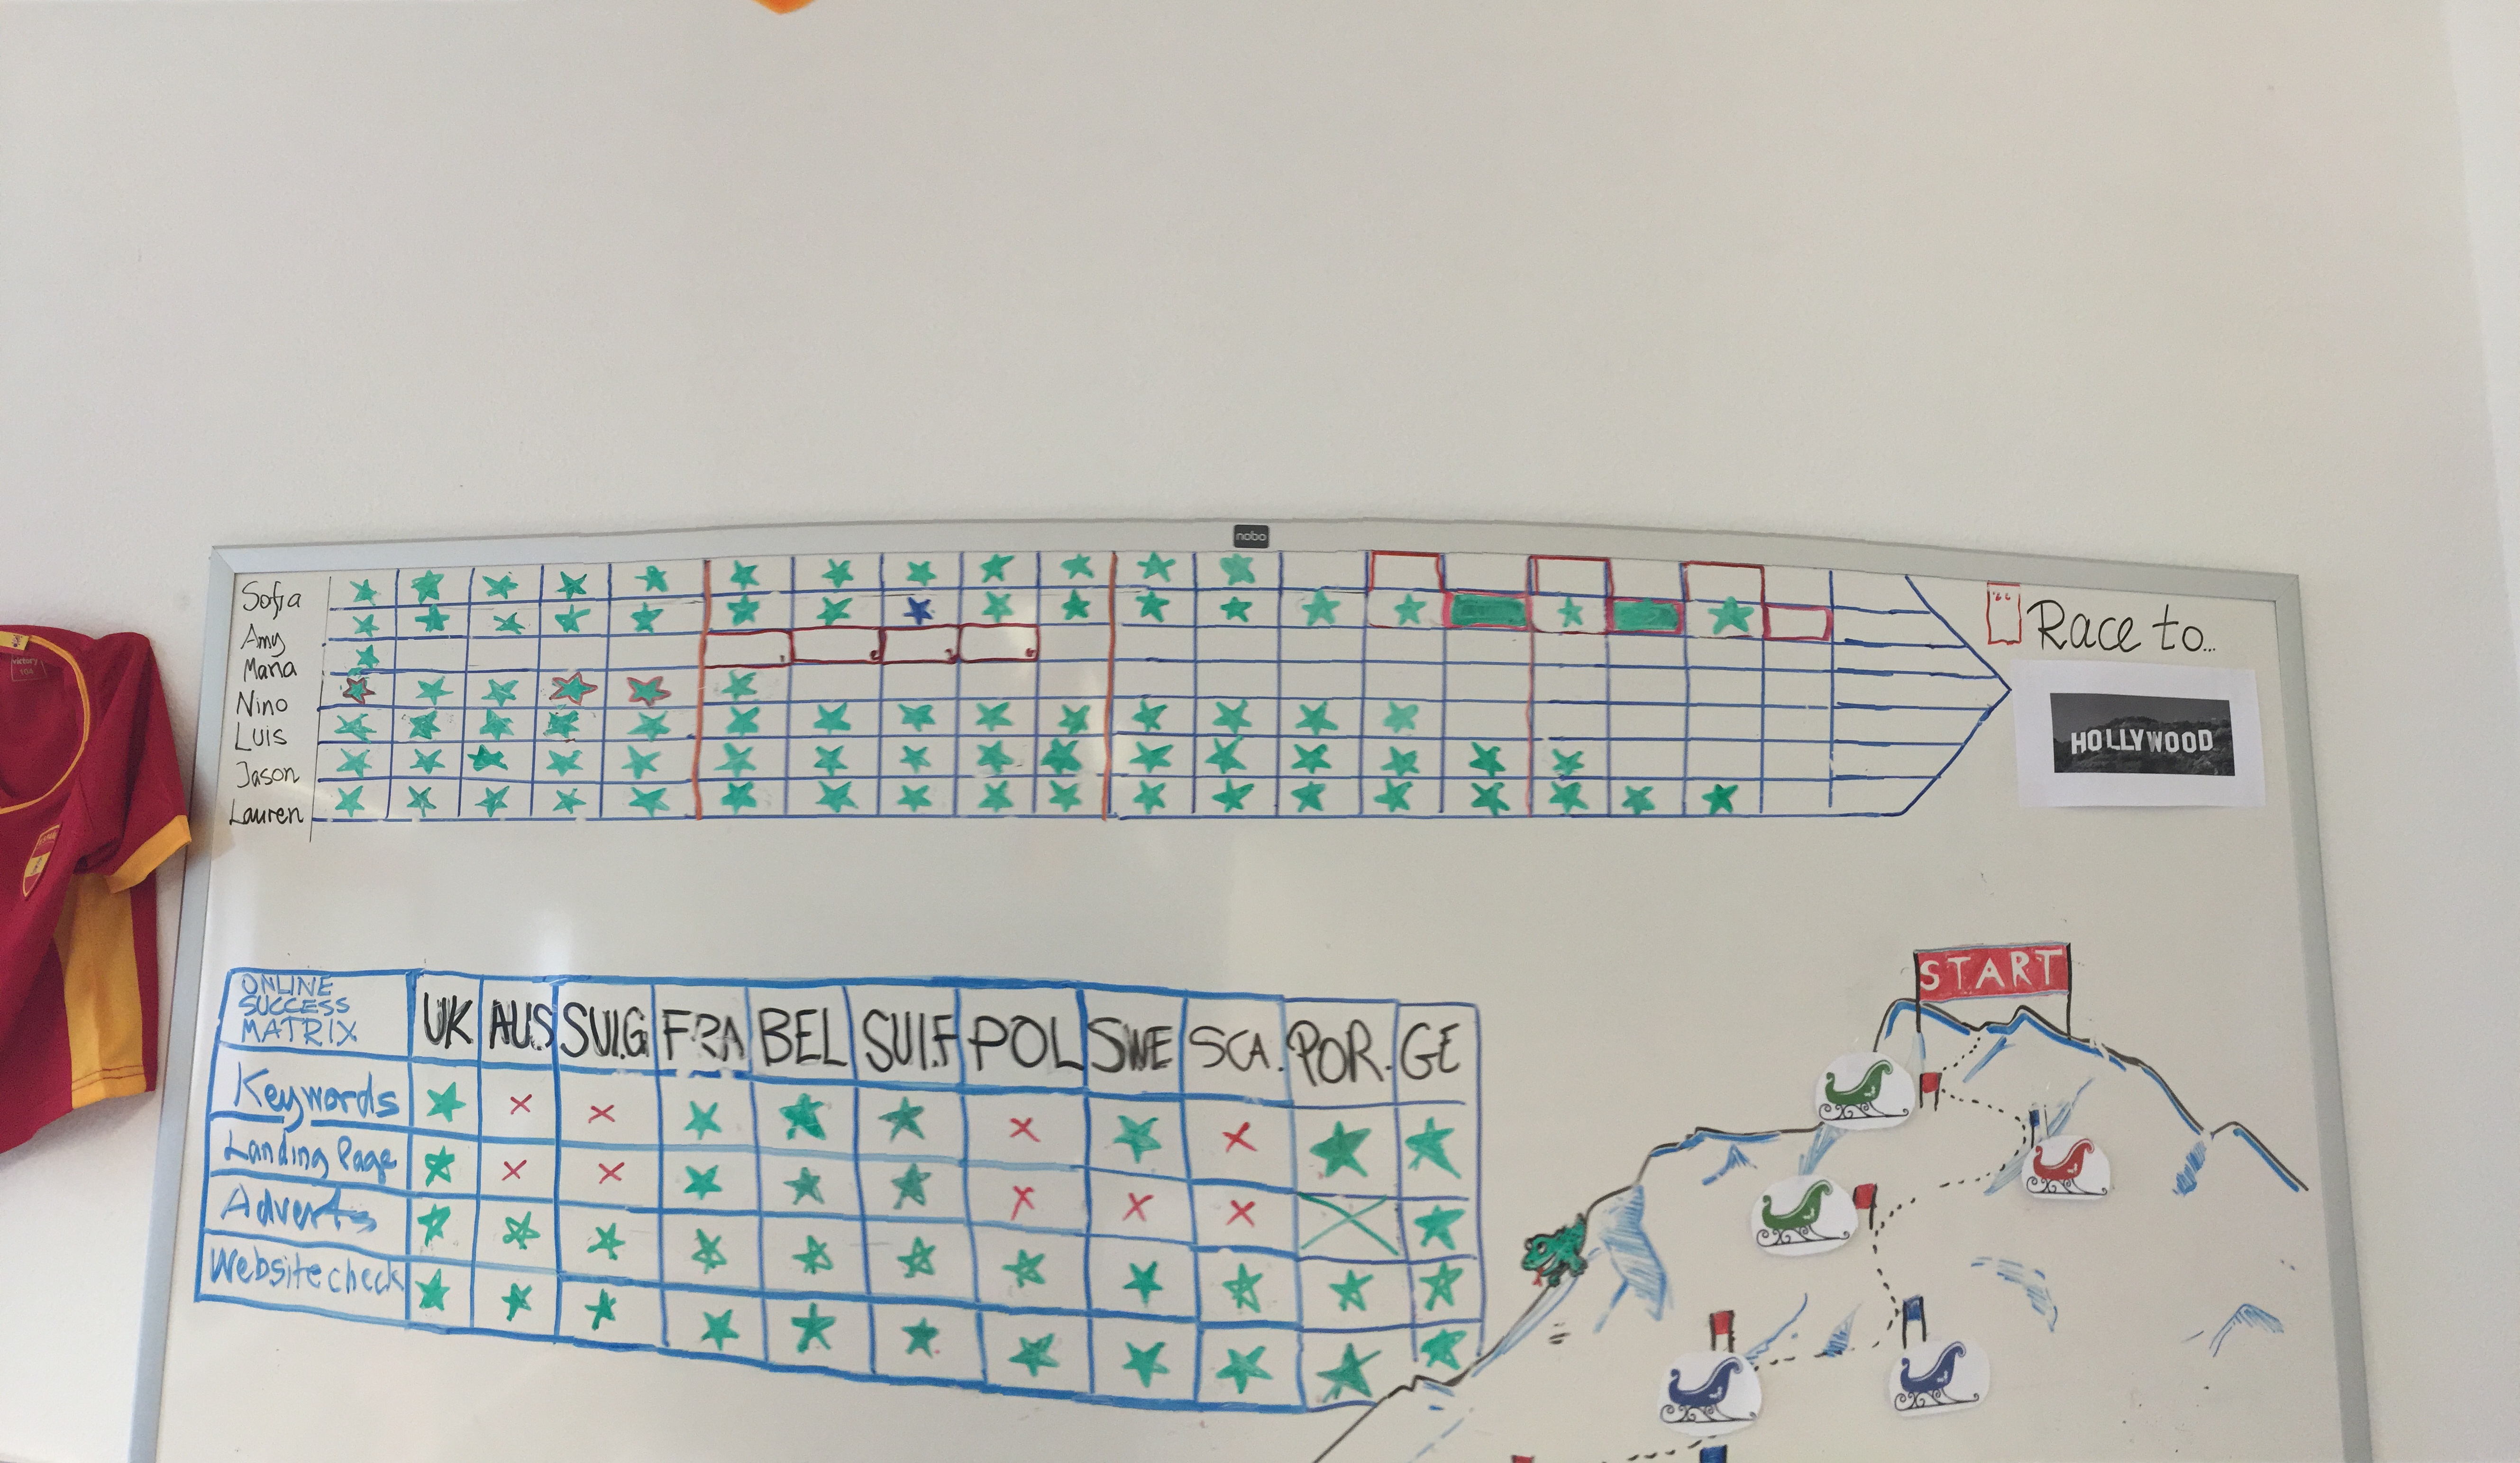 nobo
Sofia
Amy
Maria
Nino
Luis
Jason
Lauren
Race to...
HOLLYWOOD
victory
164
START
ONLINE
SUCCESS
MATRIX
UK AUS SUI.G FRA BEL SUI.F POL SWE SCA. POR. GE
Keywords
Landing Page
Adverts
Website check